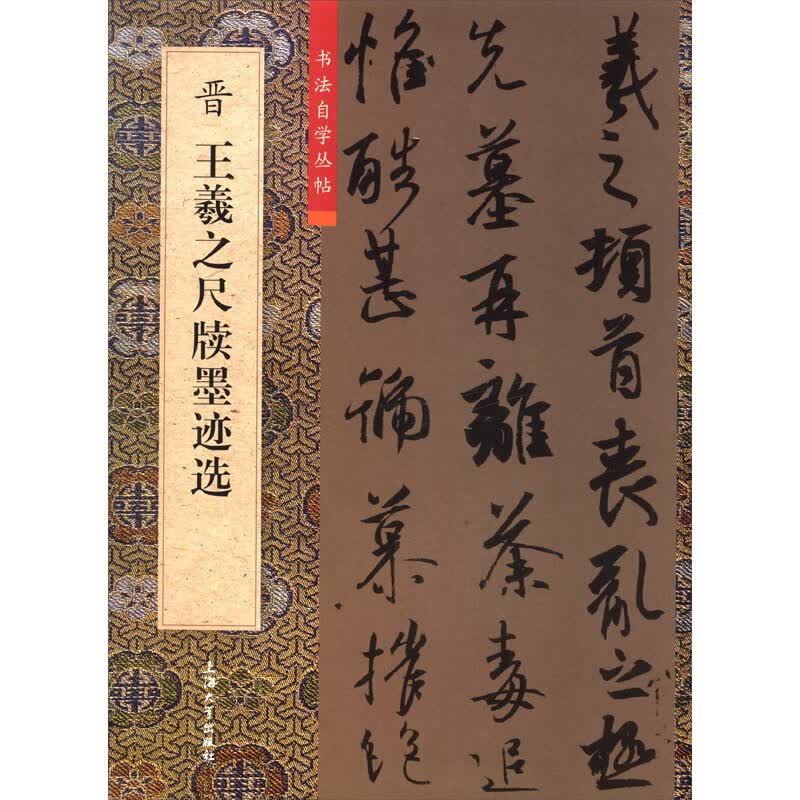 羲之頓首喪亂之極
先墓再離荼毒追
惟酷甚號慕摧絕
书法自学丛帖
晋 王羲之尺牍墨迹选
上海大学出版社